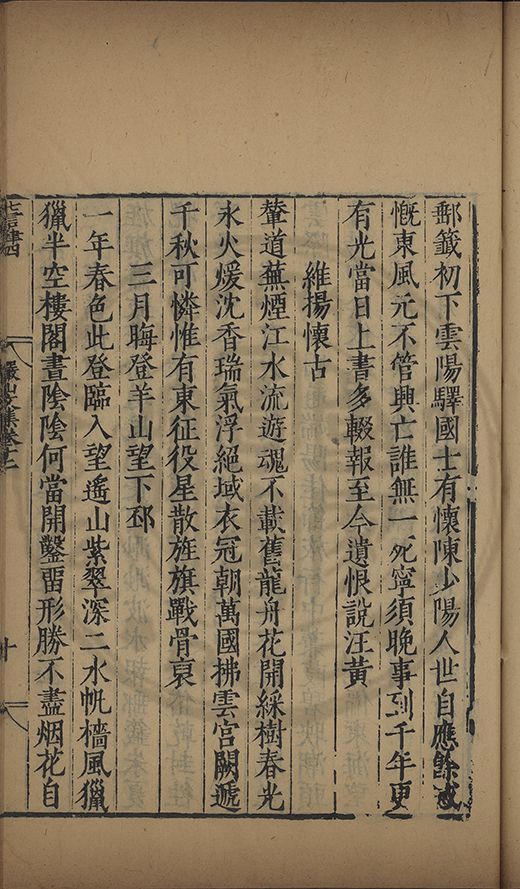 郵籤初下雲陽驛國士有懷陳少陽人世自應餘感
慨東風元不管興亡誰無一死寧須晚事到千年更
有光當日上書多輟報至今遺恨說汪黃
維揚懷古
輦道蕪煙江水流遊魂不載舊龍舟花開綵樹春光
永火煖沈香瑞氣浮絕域衣冠朝萬國拂雲宮闕遞
千秋可憐惟有東征役星散旌旗戰骨哀
三月晦登羊山望下邳
一年春色此登臨入望遙山紫翠深二水帆檣風獵
獵半空樓閣晝陰陰何當開鑿畱形勝不盡烟花自
十